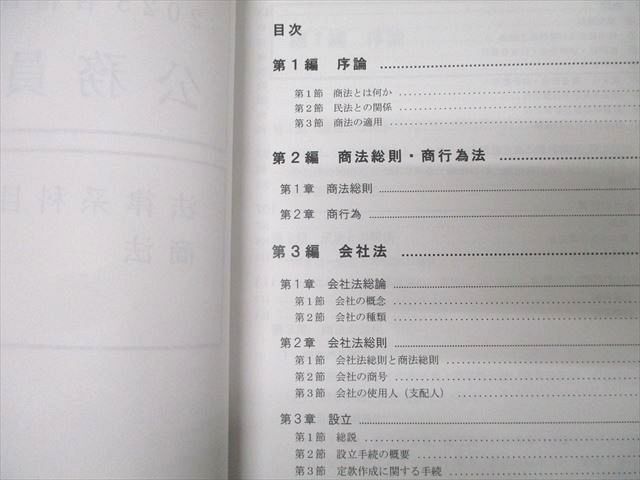 2025
公務員
法律系科目
商法
目次
第1編 序論
第1節 商法とは何か
第2節 民法との関係
第3節 商法の適用
第2編 商法総則・商行為法
第1章 商法総則
第2章 商行為
第3編 会社法
第1章 会社法総論
第1節 会社の概念
第2節 会社の種類
第2章 会社法総則
第1節 会社法総則と商法総則
第2節 会社の商号
第3節 会社の使用人（支配人）
第3章 設立
第1節 総説
第2節 設立手続の概要
第3節 定款作成に関する手続